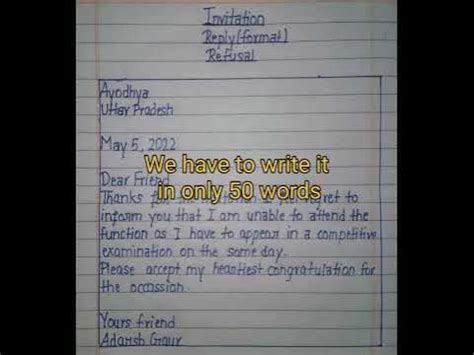 Invitation
Reply (format)
Refusal
Ayodhya
Uttar Pradesh
May 5, 2022
We have to write it
in only 50 words
Dear Friend
Thanks for the regret to
inform you that I am unable to attend the
function as I have to appear in a competitive
examination on the same day.
Please accept my heastiest congratulation for
the occassion.
Yours friend
Adarsh Gaur